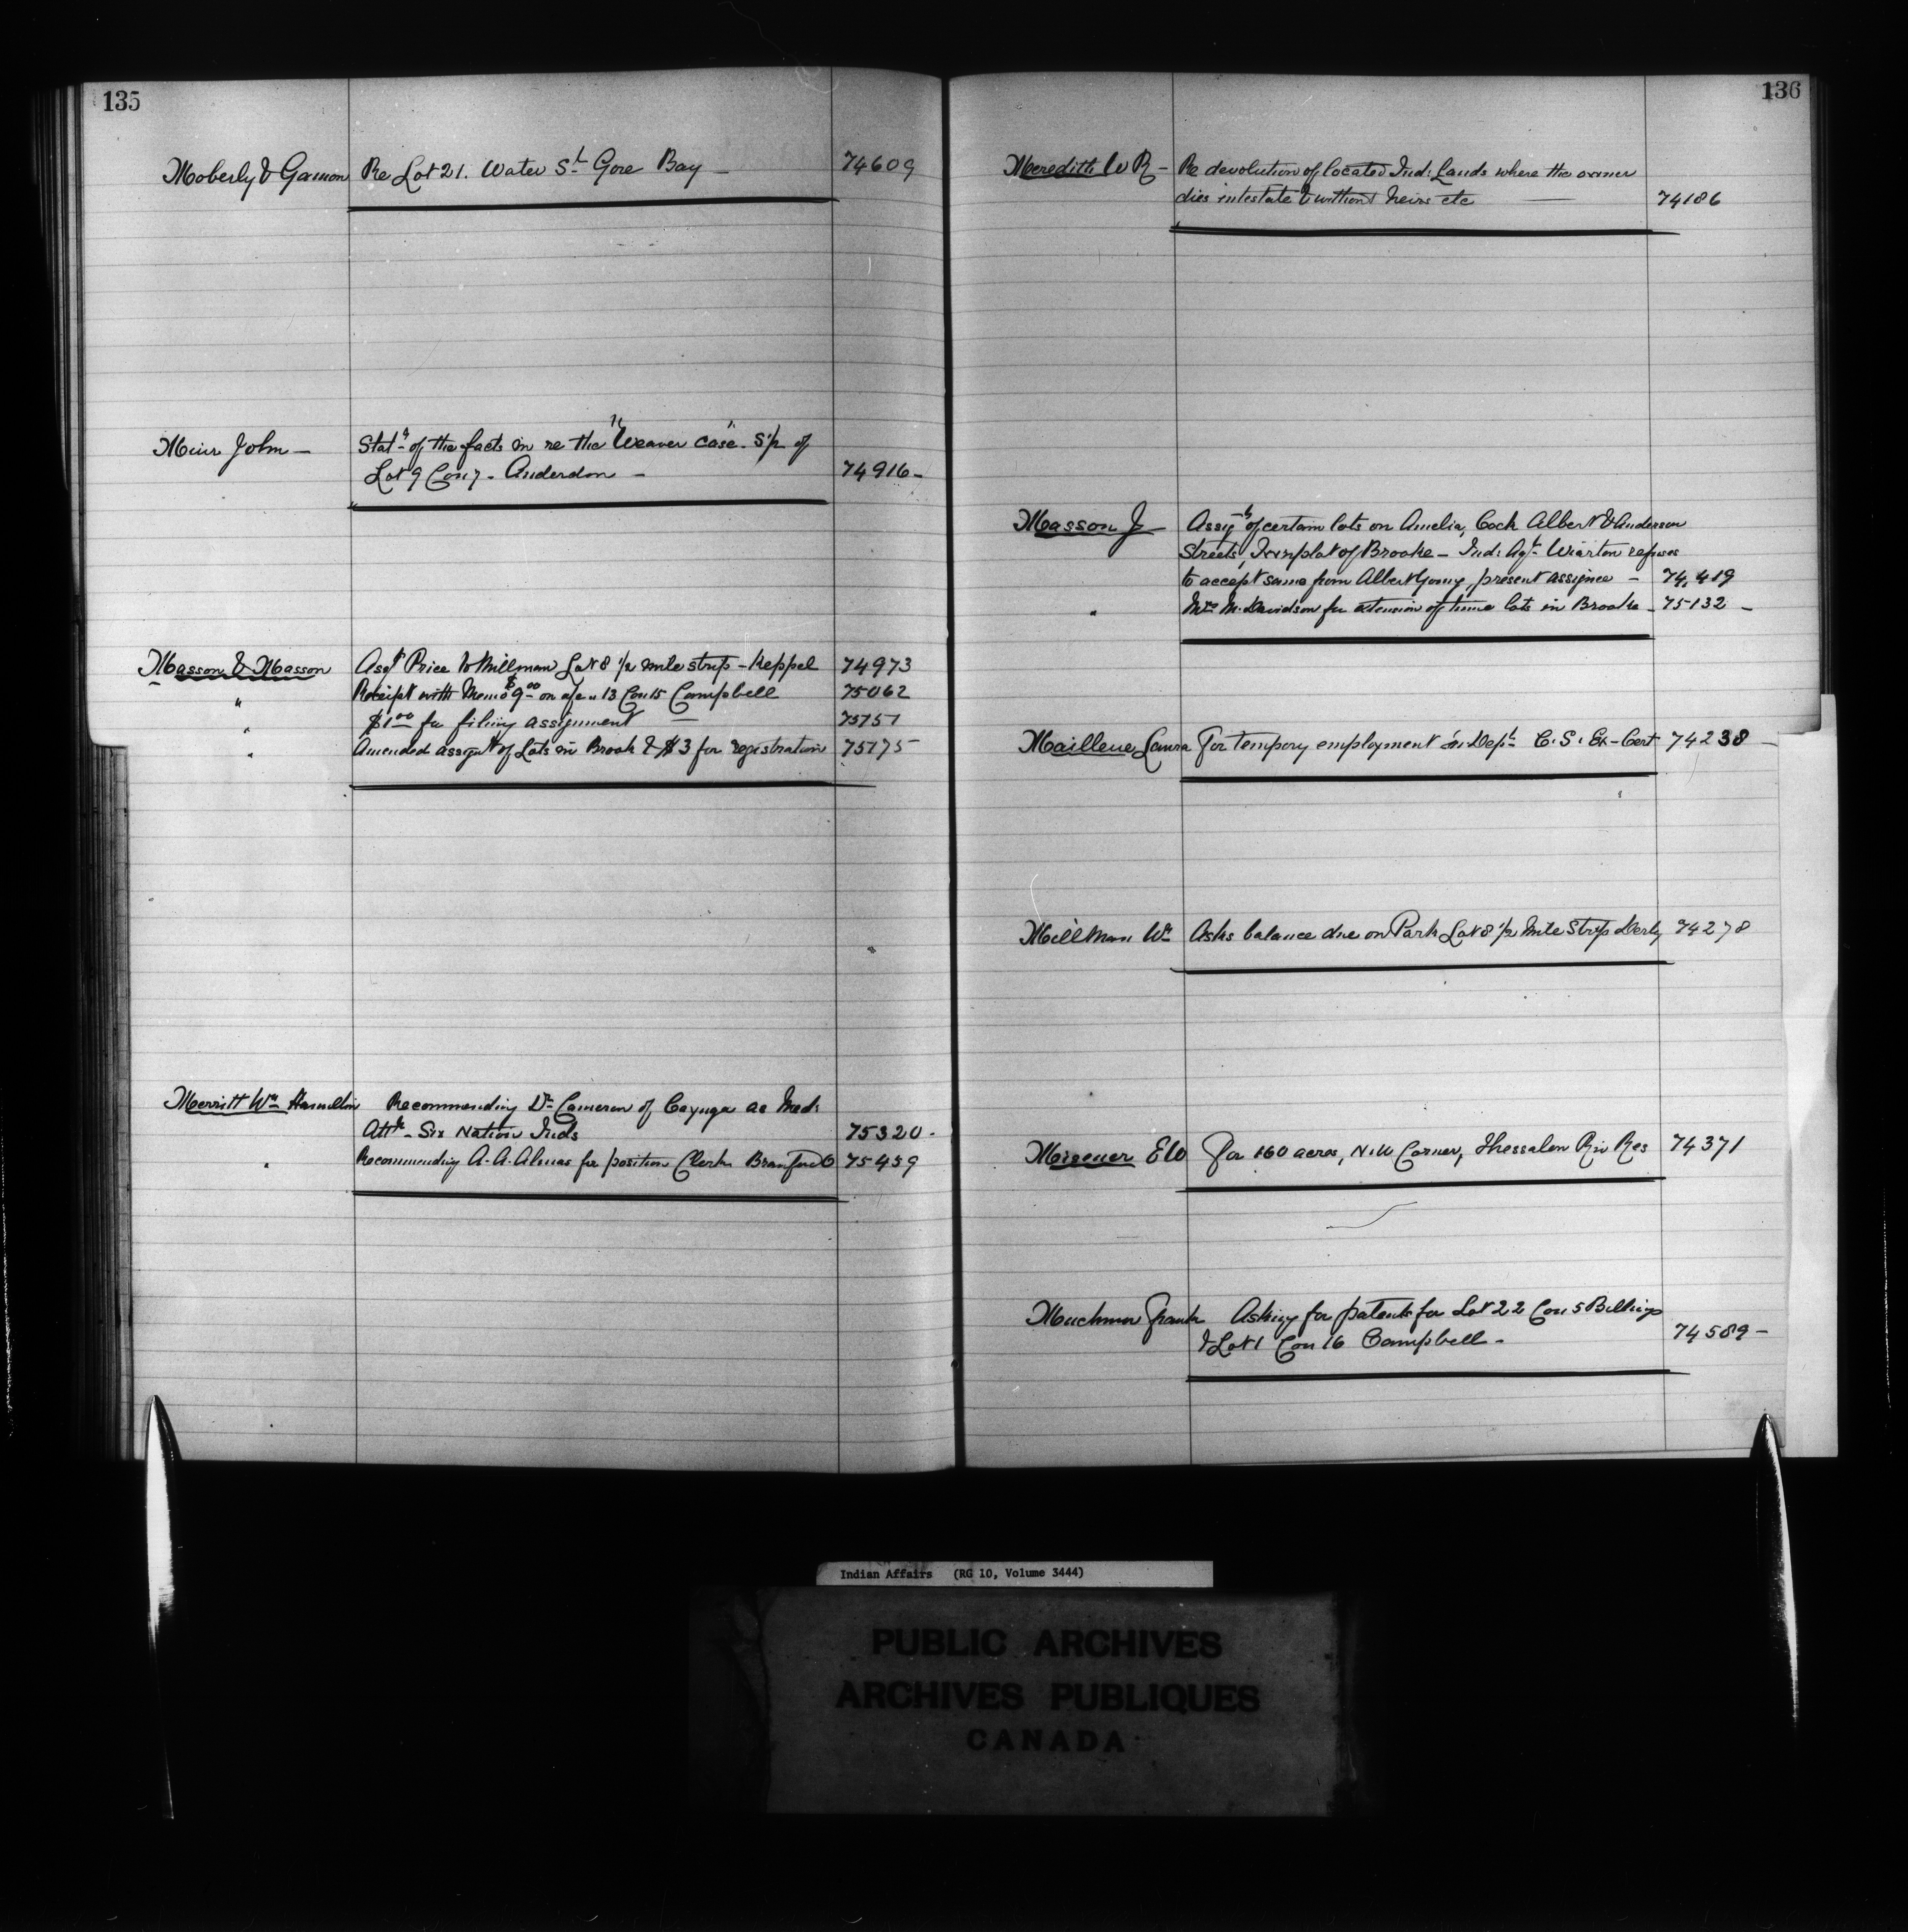 135
Moberly & Gamon Re Lot 21. Water St Gore Bay — 74609
Muir John — Statt of the facts in re the "Weaver Case". S/2 of
Lot 9 Con 7 - Anderdon — 74916 -
Masson & Masson Asgt Price to Millman Lot 8 1/2 mile strip - Keppel 74973
" Receipt with Memo $9.00 on a/c 13 Con 15 Campbell 75062
" $1.00 for filing assignment — 75151
" Amended assignt of Lots in Brook & $3 for registration 75175
Merritt Wm Hamilton Recommending Dr Cameron of Cayuga as Med:
Attt - Six Nation Inds 75320 -
" Recommending A. A. Almas for position Clerk Brantford O 75459
136
Meredith W R - Re devolution of located Ind: Lands where the owner
dies intestate & without heirs etc — 74186
Masson J Assigt of certain lots on Amelia, Cock Albert & Anderson
Streets, Townplot of Brooke - Ind: Agt Wiarton refuses
to accept same from Albert Young, present assignee - 74,419
" Mrs M. Davidson for extension of time lots in Brooke - 75132 -
Mailleue Laura For tempory employment in Dept C. S. Ex - Cert 74238 -
Millman Wm Asks balance due on Park Lot 8 1/2 Mile Strip Derby 74278
Misener E W For 160 acres, N.W Corner, Thessalon Riv Res 74371
Muchmor Frank Asking for patents for Lot 22 Con 5 Billings
& Lot 1 Con 16 Campbell - 74589 -
Indian Affairs (RG 10, Volume 3444)
PUBLIC ARCHIVES
ARCHIVES PUBLIQUES
CANADA